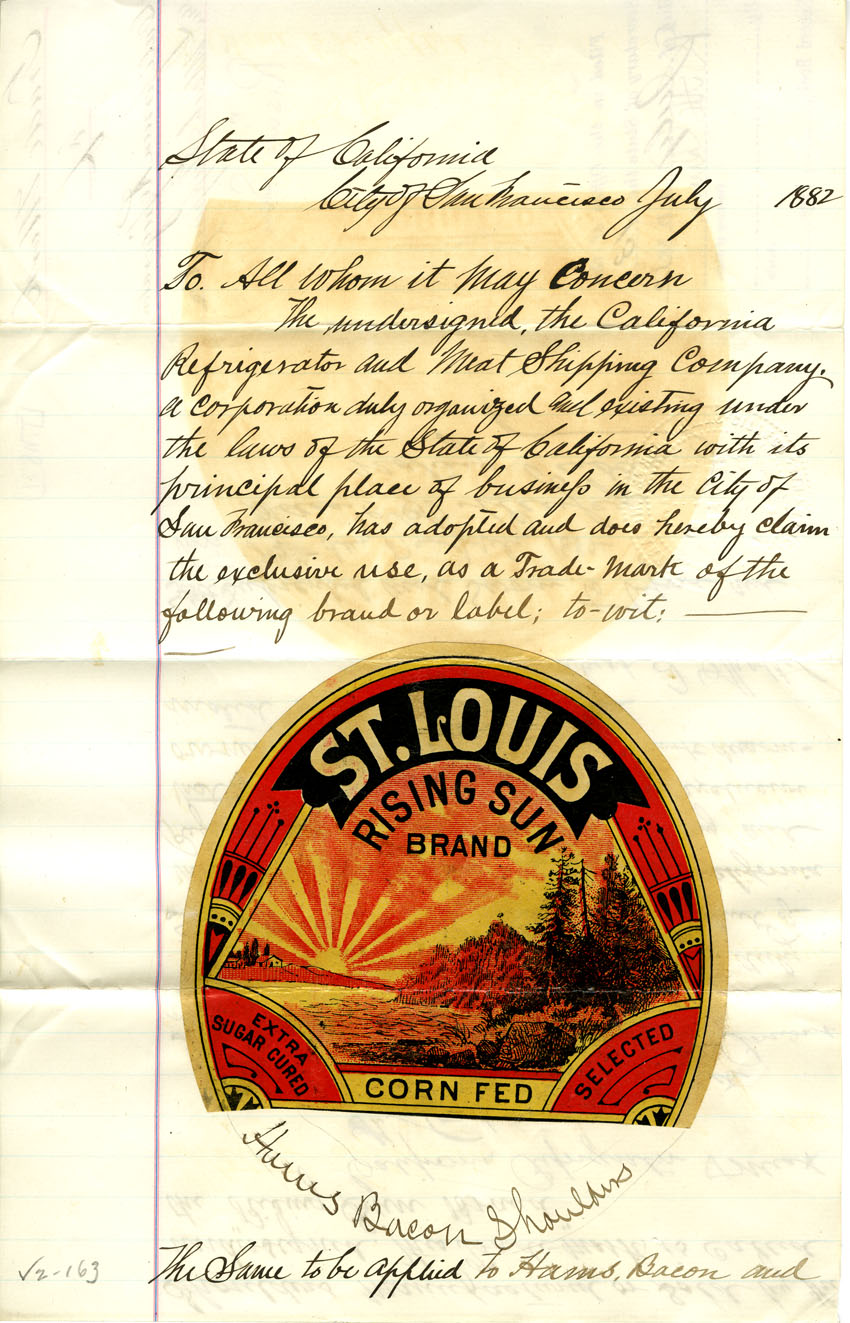 State of California
City of San Francisco July 1882
To. All whom it May Concern
The undersigned, the California
Refrigerator and Meat Shipping Company.
a corporation duly organized and existing under
the laws of the State of California with its
principal place of business in the City of
San Francisco, has adopted and does hereby claim
the exclusive use, as a Trade-Mark of the
following brand or label; to-wit:
ST. LOUIS
RISING SUN
BRAND
EXTRA
SUGAR CURED
CORN FED
SELECTED
Hams Bacon Shoulders
The Same to be applied to Hams, Bacon and
√2-163